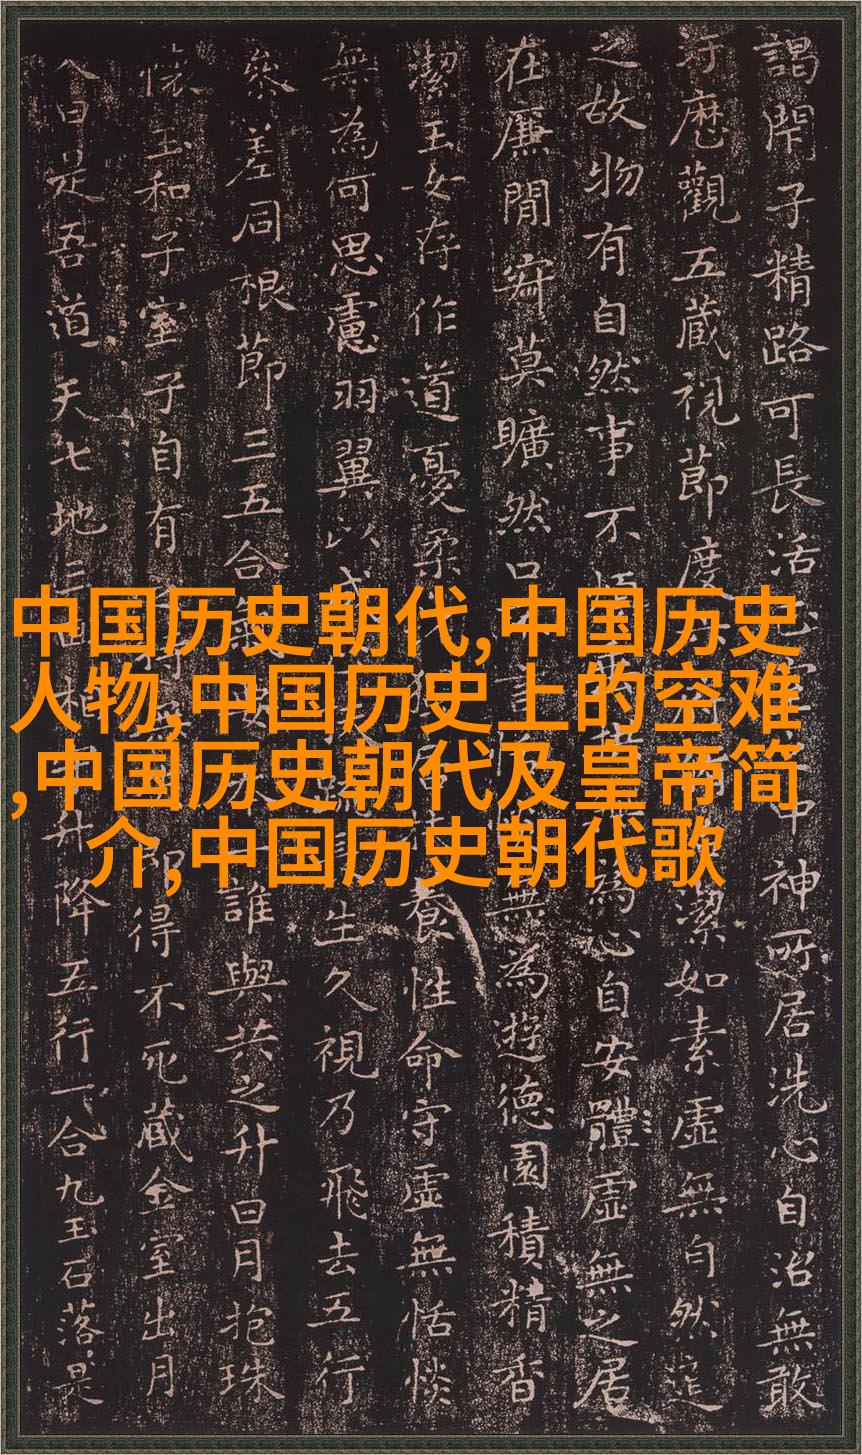 中国历史朝代,中国历史
人物,中国历史上的空难
,中国历史朝代及皇帝简
介,中国历史朝代歌
謁閈子精路可長活中神所居洗心自治無敢
汙歷觀五藏視節度潔如素虛無自然道
之故物有自然事不為心自安體虛無之居
在廉閒寂莫曠然無為遊德園積精香
潔玉女存作道憂柔養性命守虛無恬惔
無為何思慮羽翼以成生久視乃飛去五行
參差同根節三五合氣誰與共之升日月抱珠
懷玉和子室子自有得不死藏金室出月
入日是吾道天七地三升降五行一合九玉石落是